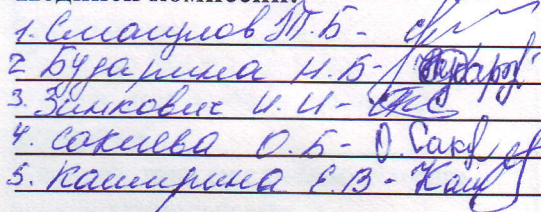 1. Смагулов Т.Б -
2. Бударина Н.Б -
3. Зинкович И.И -
4. Сакиева О.Б - О.Сак
5. Каширина Е.В - Каш